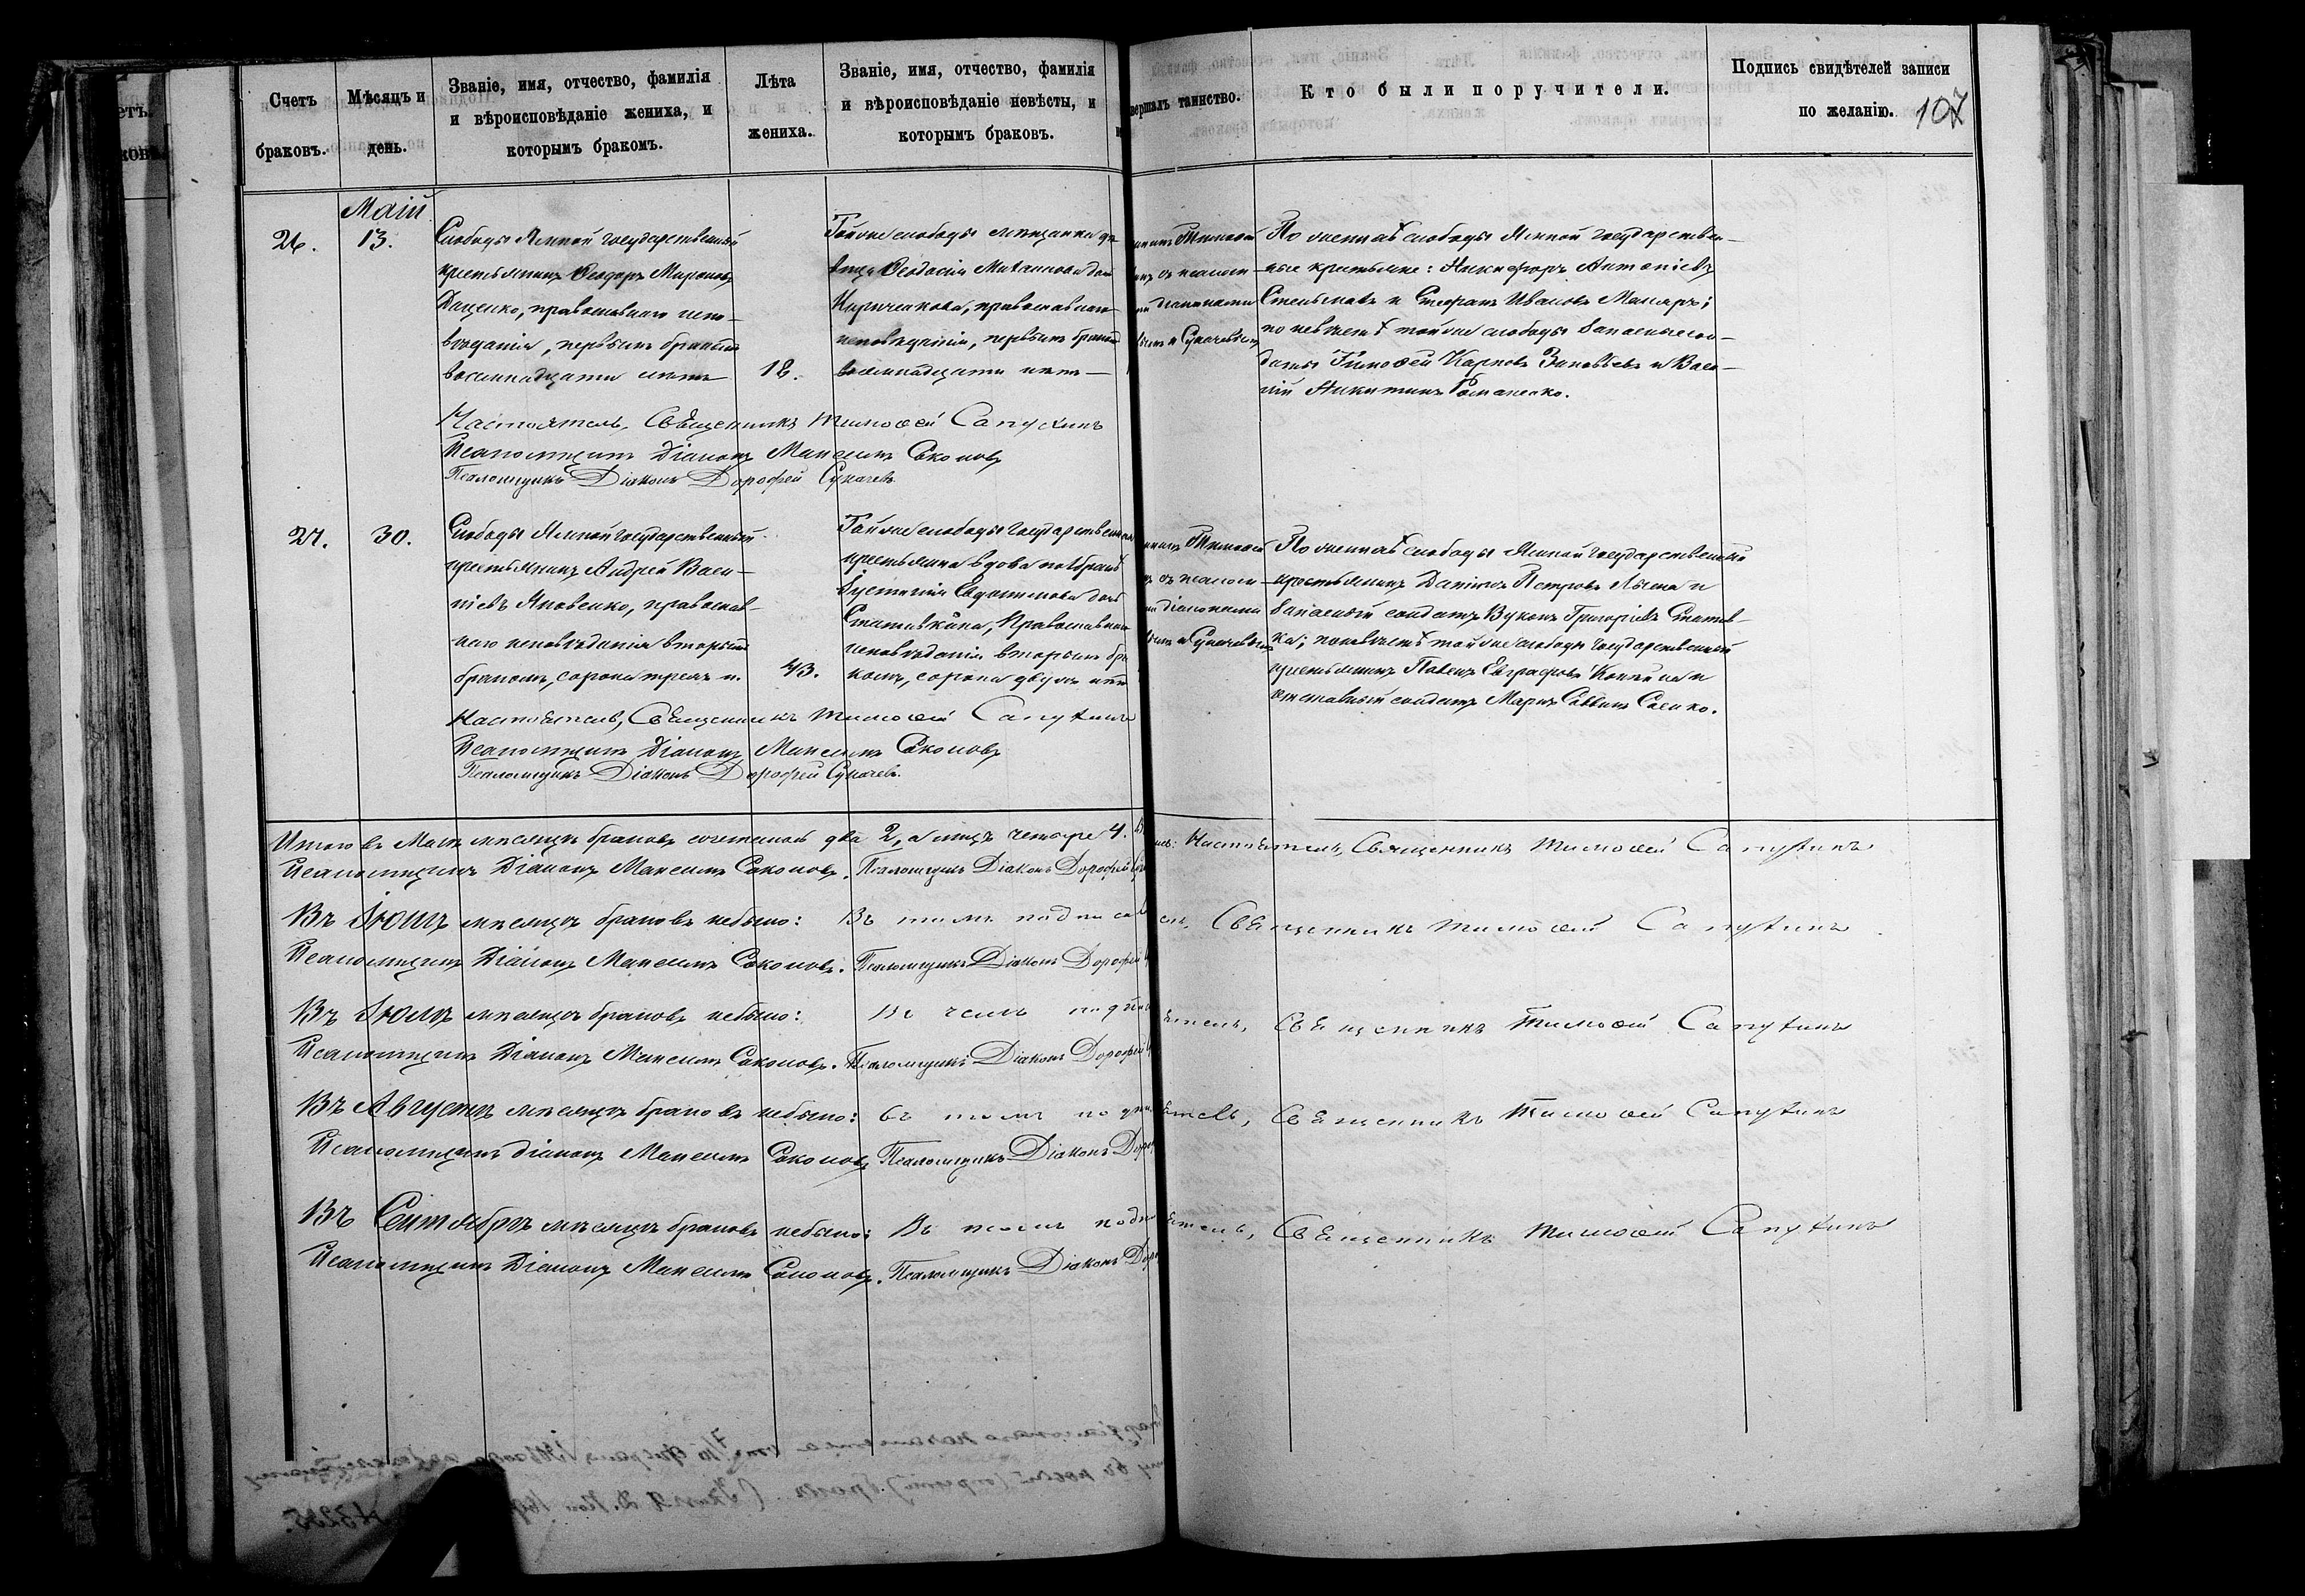 Счетъ
браковъ.
Мѣсяцъ и
день.
Званіе, имя, отчество, фамилія
и вѣроисповѣданіе жениха, и
которымъ бракомъ.
Лѣта
жениха.
Званіе, имя, отчество, фамилія
и вѣроисповѣданіе невѣсты, и
которымъ браковъ.
таинство.
Кто были поручители.
Подпись свидѣтелей записи
по желанію.
107
Маій
26.
13.
Слободы Ямной государственный
крестьянинъ Ѳеодоръ Мироновъ
Даценко, православнаго испо-
вѣданія, первымъ бракомъ
восемнадцати лѣтъ
18.
Той же слободы мѣщанка дѣ
вица Ѳеодосія Михаилова дочь
православнаго
исповѣданія, первымъ бракомъ
восемнадцати лѣтъ
Тимоѳей
и Сукачевымъ
По женихѣ слободы Ямной государствен-
ные крестьяне: Никифоръ Антоніевъ
Стельмахъ и Стефанъ Ивановъ Маляръ;
по невѣстѣ той же слободы запасные сол-
даты Тимоѳей Карповъ Зиновьевъ и Васи-
лій Никитинъ Романенко.
Настоятель, Священникъ Тимоѳей Сапухинъ
Псаломщикъ Діаконъ Максимъ Соколовъ
Псаломщикъ Діаконъ Дорофей Сукачевъ
27.
30.
Слободы Ямной государственный
крестьянинъ Андрей Васи-
ліевъ Яковенко, православ-
наго исповѣданія вторымъ
бракомъ, сорока трехъ л.
43.
Той же слободы государствен
крестьянка вдова по браку
Іустинія Евдокимова дочь
Православнаго
исповѣданія вторымъ бра
комъ, сорока двухъ лѣтъ
Тимоѳей
діаконами
и Сукачевымъ
По женихѣ слободы Ямной государственный
крестьянинъ Даніилъ Петровъ и
запасный солдатъ Вуколъ Григоріевъ Статив-
ка; по невѣстѣ той же слободы государственный
крестьянинъ Павелъ Евграфовъ и
отставный солдатъ Маркъ Саввинъ Саенко.
Настоятель, Священникъ Тимоѳей Сапухинъ
Псаломщикъ Діаконъ Максимъ Соколовъ
Псаломщикъ Діаконъ Дорофей Сукачевъ.
Итого въ Маѣ мѣсяцѣ браковъ сочеталось два 2, а лицъ четыре 4. Настоятель, Священникъ Тимоѳей Сапухинъ
Псаломщикъ Діаконъ Максимъ Соколовъ. Псаломщикъ Діаконъ Дорофей
Въ Іюнѣ мѣсяцѣ браковъ небыло: Въ томъ Священникъ Тимоѳей Сапухинъ
Псаломщикъ Діаконъ Максимъ Соколовъ. Псаломщикъ Діаконъ Дорофей
Въ Іюлѣ мѣсяцѣ браковъ небыло: Въ чемъ Священникъ Тимоѳей Сапухинъ
Псаломщикъ Діаконъ Максимъ Соколовъ. Псаломщикъ Діаконъ Дорофей
Въ Августѣ мѣсяцѣ браковъ небыло: въ томъ Священникъ Тимоѳей Сапухинъ
Псаломщикъ Діаконъ Максимъ Соколовъ Псаломщикъ Діаконъ
Въ Сентябрѣ мѣсяцѣ браковъ небыло: Въ томъ Священникъ Тимоѳей Сапухинъ
Псаломщикъ Діаконъ Максимъ Соколовъ. Псаломщикъ Діаконъ